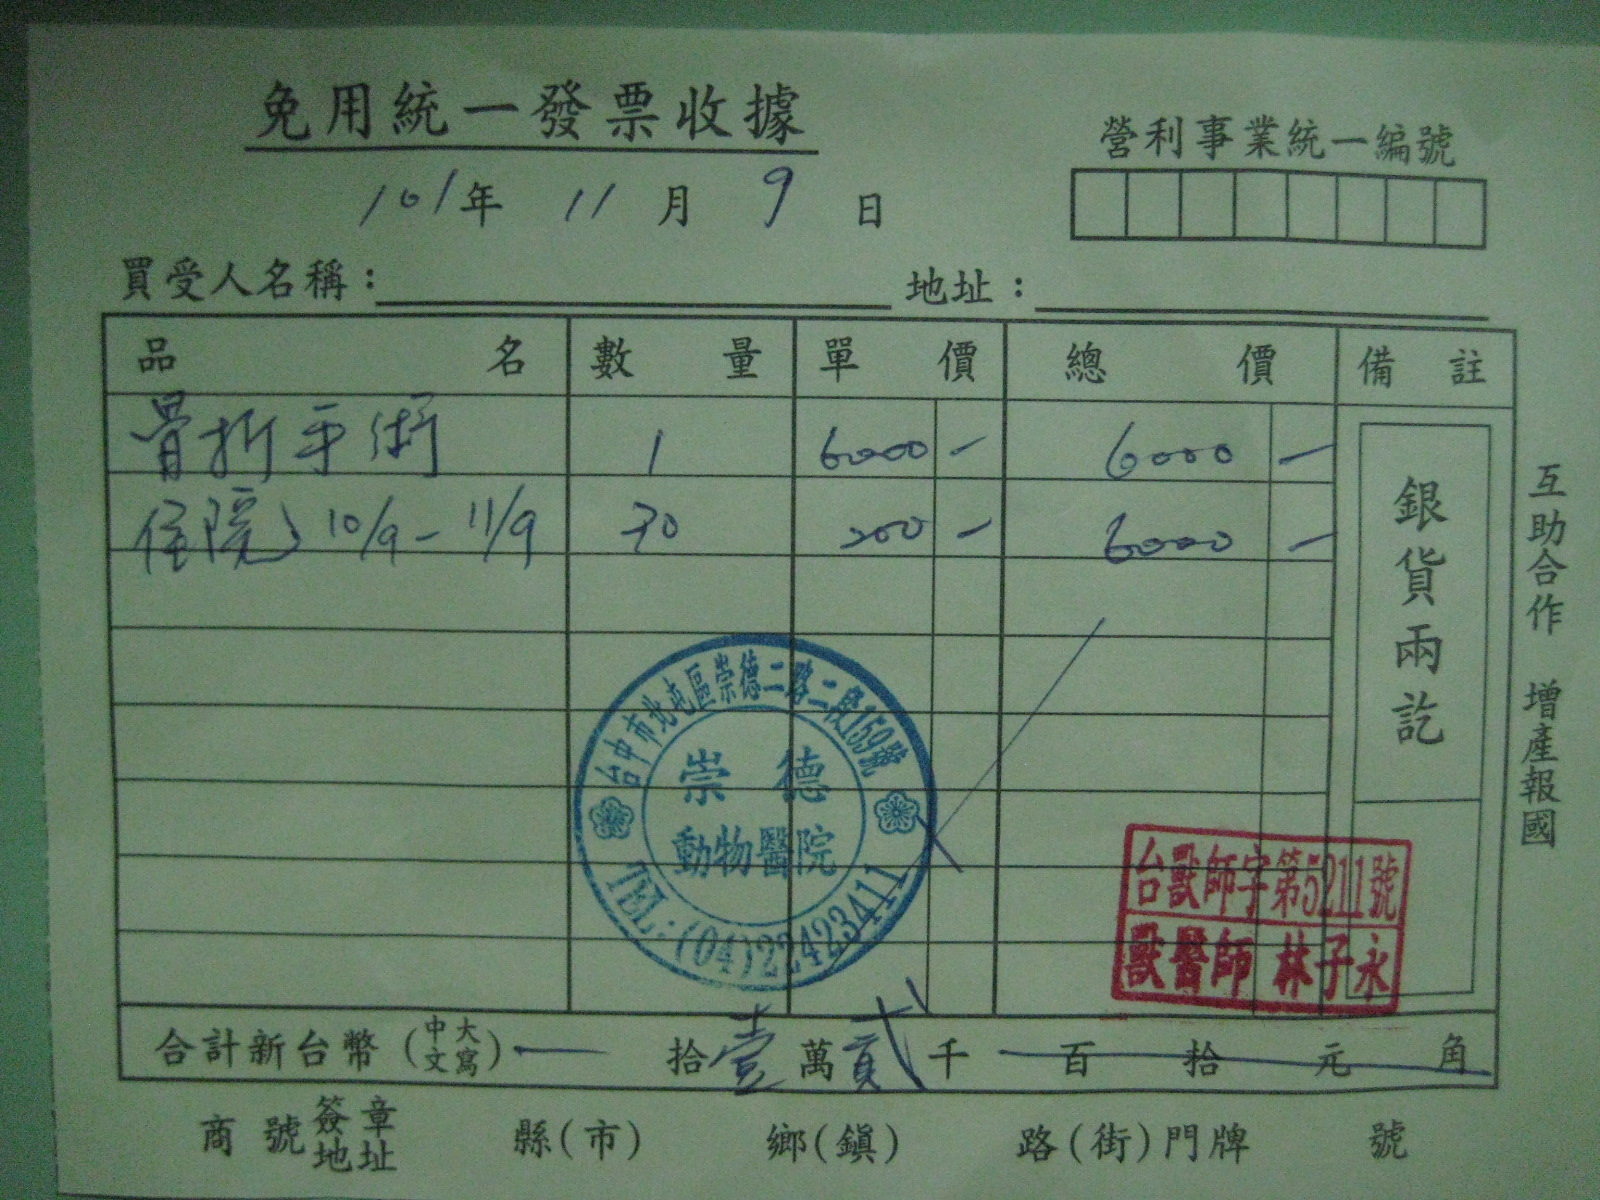 免用統一發票收據
營利事業統一編號
101年 11月 9日
買受人名稱： 地址：
品名 數量 單價 總價 備註
骨折手術 1 6000 - 6000 -
住院 10/9 - 11/9 30 200 - 6000 -
銀貨兩訖
互助合作 增產報國
台中市北屯區崇德二路二段159號
崇德
動物醫院
TEL:(04)22423411
台獸師字第5211號
獸醫師 林子永
合計新台幣(中文大寫) 拾壹萬貳千百拾元角
商號簽章地址 縣(市) 鄉(鎮) 路(街)門牌 號